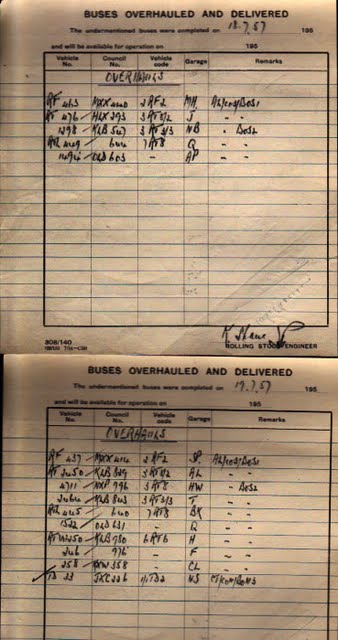 BUSES OVERHAULED AND DELIVERED
The undermentioned buses were completed on 18.7.57 195
and will be available for operation on 195
Vehicle No. Council No. Vehicle code Garage Remarks
OVERHAULS
RF 463 MXX 440 2RF2 MH
RT 476 HLX 293 3RT3/2 J " "
1298 KLB 547 3RT3/3 NB "
449 644 7RT8 Q " "
1494 OLD 603 - AP " "
308/140
ROLLING STOCK ENGINEER
BUSES OVERHAULED AND DELIVERED
The undermentioned buses were completed on 19.7.57 195
and will be available for operation on 195
Vehicle No. Council No. Vehicle code Garage Remarks
OVERHAULS
RF 437 MXX 414 2RF2 SP
RT 2050 KLB 829 AL " "
4711 NXP 996 3RT8 HW "
KLB 843 3RT3/3 T " "
445 640 7RT8 BK " "
1522 OLD 631 - Q " "
RTW 250 KLB 980 6RT6 H " "
246 976 - F " "
258 KXW 358 - CL " "
TD 33 JXC 226 1/1TD2 NS